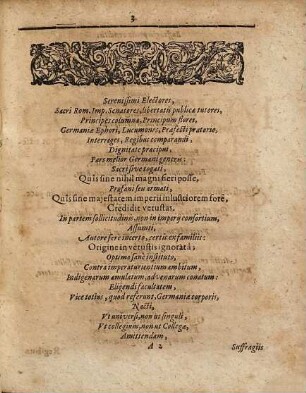 3
Serenissimi Electores,
Sacri Rom. Imp. Senatores, libertatis publicæ tutores,
Principes columnæ, Principum flores,
Germaniæ Ephori, Lucumones, Præfecti prætorio,
Interreges, Regibus comparandi
Dignitate præcipui,
Pars melior Germani generis:
Sacri sive togati,
Quîs sine nihil magni fieri posse,
Profani seu armati,
Quîs sine majestatem imperii iniustiorem fore,
Credidit vetustas.
In partem sollicitudinis, non in imperij consortium,
Assumti,
Autore fere incerto, certis ex familiis:
Origine in vetustis ignoratâ,
Optimo sanè instituto,
Contra imperaturientium ambitum,
Indigenarum æmulatum, advenarum conatum:
Eligendi facultatem,
Vice totius, quod referunt, Germaniæ corporis,
Nacti,
Vt universi, non ut singuli,
Vt collegium, non ut Collegæ,
Amittendam,
A 2
Suffragiis